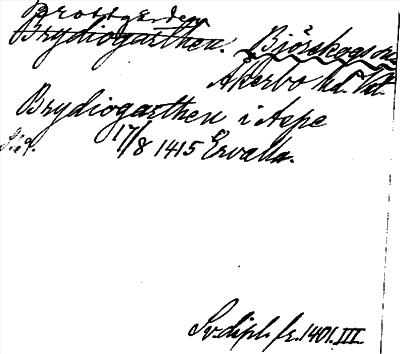 Brydiogarthen. Björskogs sn
Åkerbo hd. Vt.
Brydiogarthen i Aspe
17/8 1415 Ervalla.
Sv. dipl. fr. 1401. III.